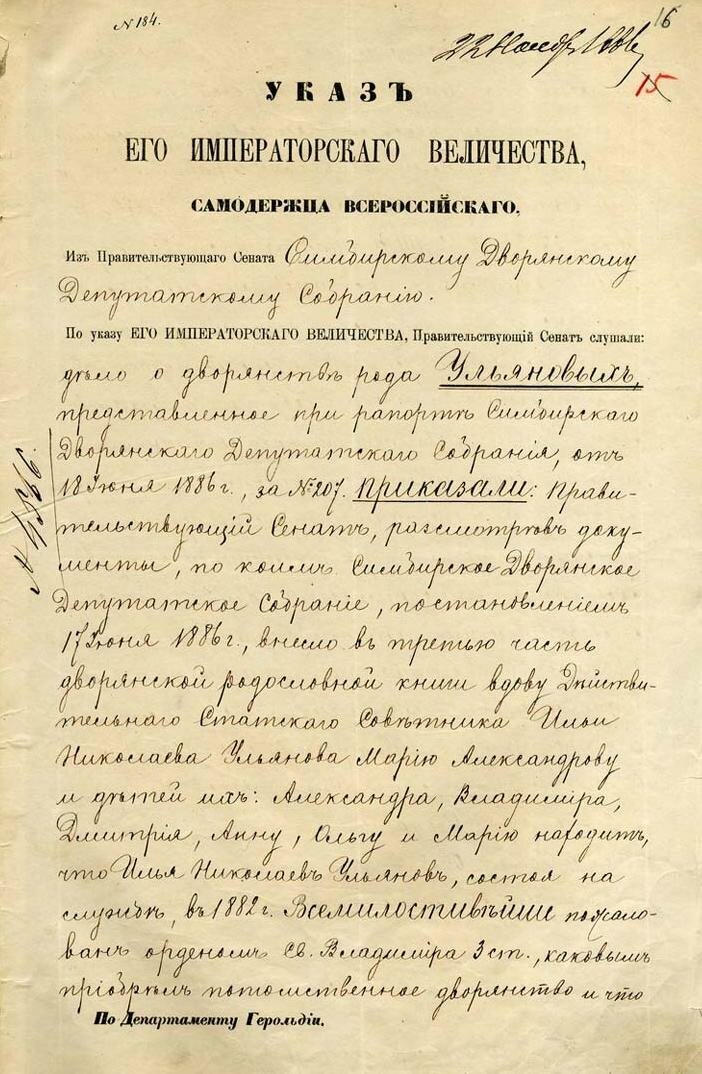 N 184.
16
22 Ноябр 1886
15
УКАЗЪ
ЕГО ИМПЕРАТОРСКАГО ВЕЛИЧЕСТВА,
САМОДЕРЖЦА ВСЕРОССІЙСКАГО,
Изъ Правительствующаго Сената Симбирскому Дворянскому
Депутатскому Собранію.
По указу ЕГО ИМПЕРАТОРСКАГО ВЕЛИЧЕСТВА, Правительствующій Сенатъ слушали:
дѣло о дворянствѣ рода Ульяновыхъ,
представленное при рапортѣ Симбирскаго
Дворянскаго Депутатскаго Собранія, отъ
18 Іюня 1886 г., за № 207. приказали: Прави-
тельствующій Сенатъ, разсмотрѣвъ доку-
менты, по коимъ Симбирское Дворянское
Депутатское Собраніе, постановленіемъ
17 Іюня 1886 г., внесло въ третью часть
дворянской родословной книги вдову Дѣйстви-
тельнаго Статскаго Совѣтника Ильи
Николаева Ульянова Марію Александрову
и дѣтей ихъ: Александра, Владиміра,
Дмитрія, Анну, Ольгу и Марію находитъ,
что Илья Николаевъ Ульяновъ, состоя на
службѣ, въ 1882 г. Всемилостивѣйше пожало-
ванъ орденомъ Св. Владиміра 3 ст., каковымъ
пріобрѣлъ потомственное дворянство и что
По Департаменту Герольдіи.